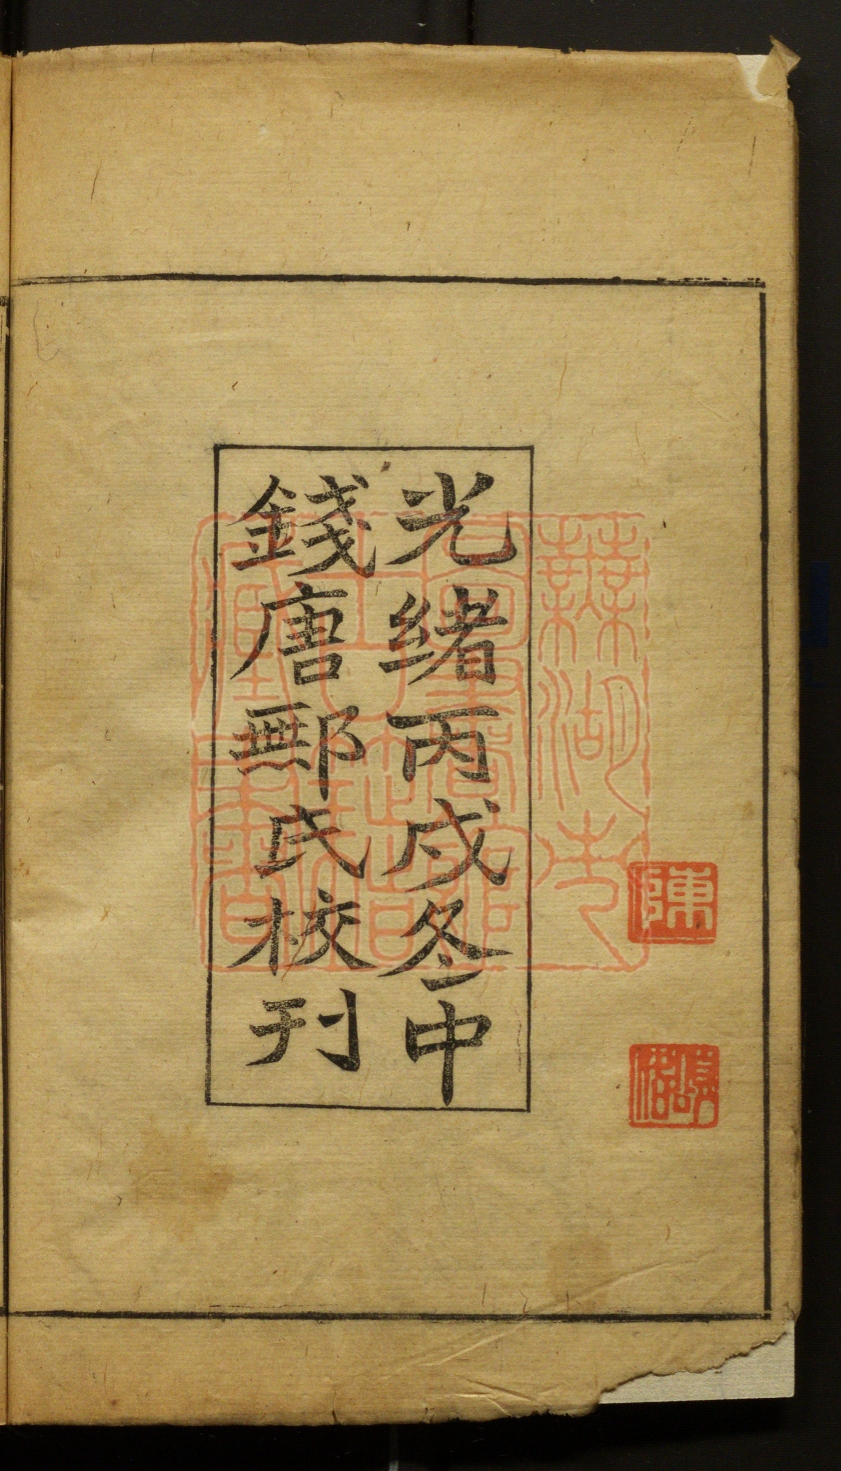 光緒丙戌冬中
錢唐鄦氏校刊
陳